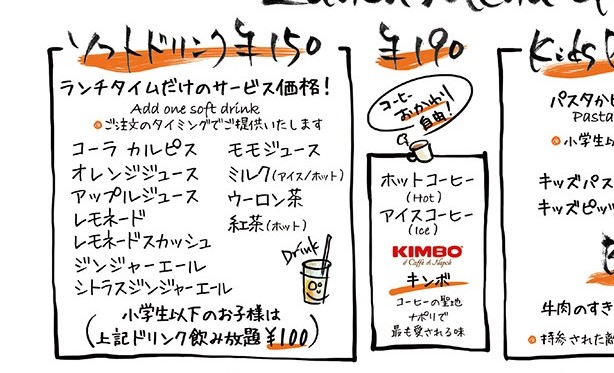 Lunch Menu
ソフトドリンク ¥150
ランチタイムだけのサービス価格!
Add one soft drink
ご注文のタイミングでご提供いたします
コーラ カルピス
オレンジジュース
アップルジュース
レモネード
レモネードスカッシュ
ジンジャーエール
シトラスジンジャーエール
モモジュース
ミルク(アイス/ホット)
ウーロン茶
紅茶(ホット)
Drink
小学生以下のお子様は
(上記ドリンク飲み放題¥100)
¥190
コーヒー
おかわり
自由!
ホットコーヒー
(Hot)
アイスコーヒー
(Ice)
KIMBO
il Caffè di Napoli
キンボ
コーヒーの聖地
ナポリで
最も愛される味
Kids
パスタか
Pasta
小学生以
キッズパス
キッズピッツ
牛肉のすき
持参された